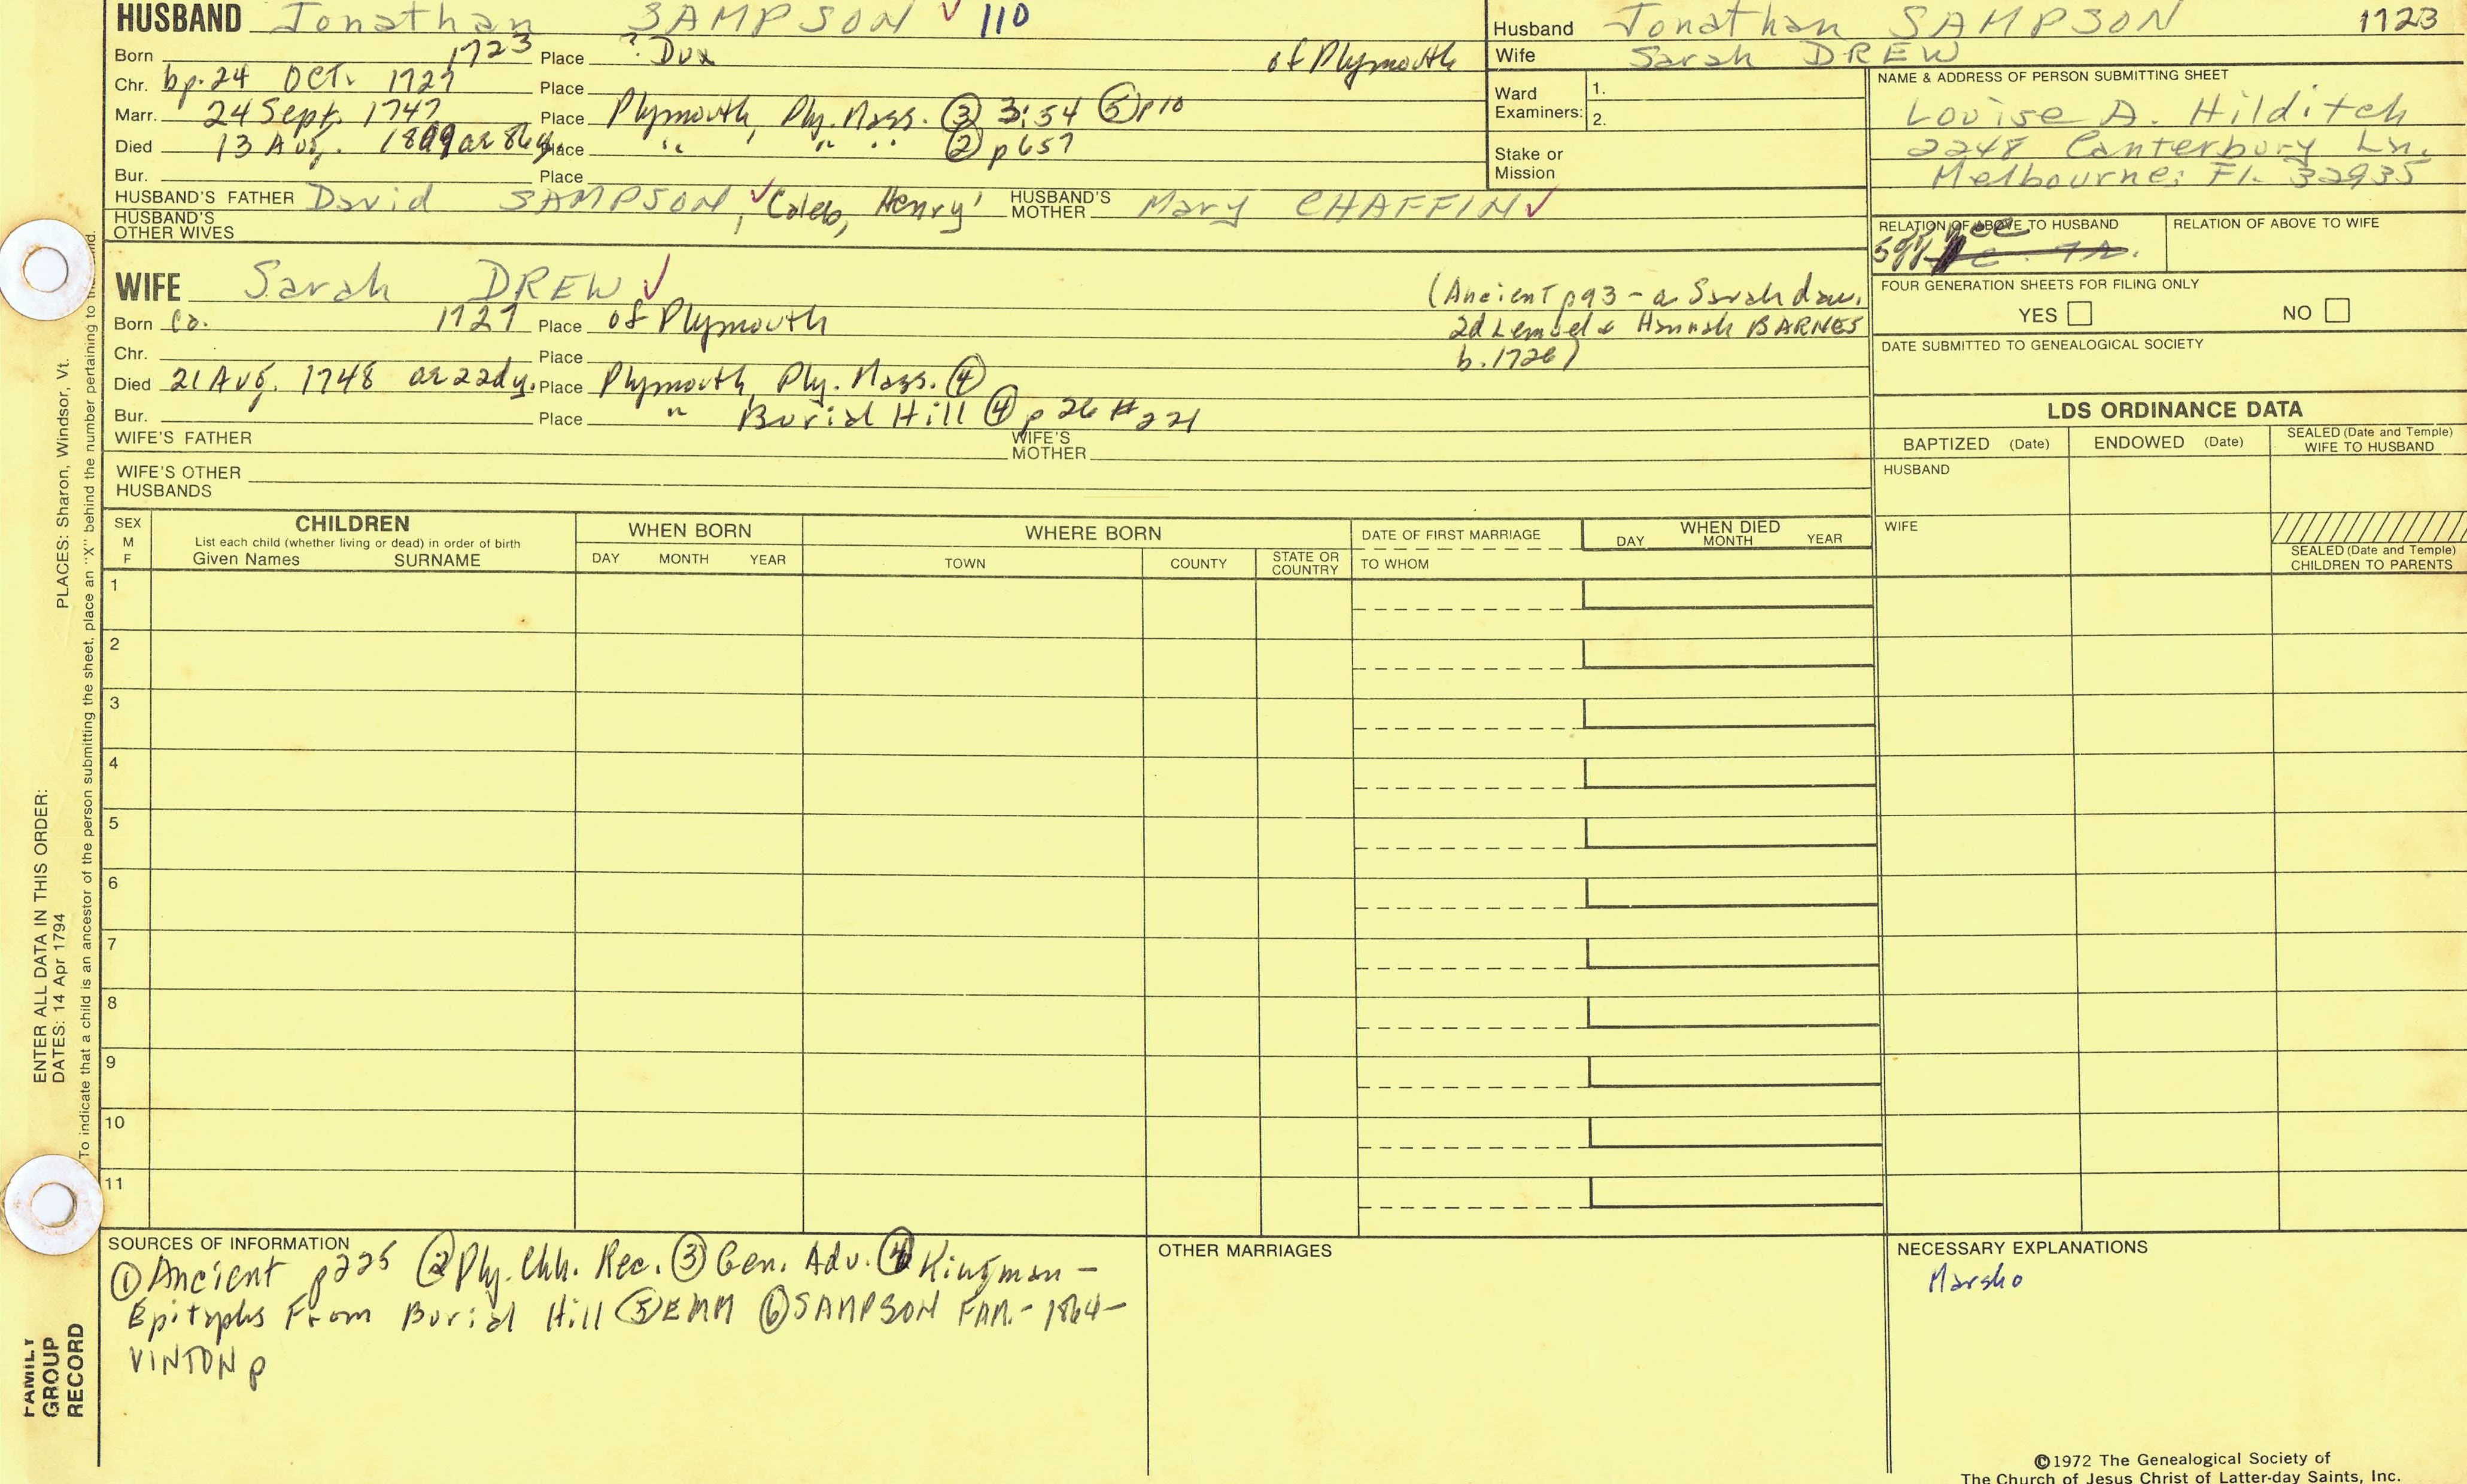 HUSBAND Jonathan SAMPSON ✓ 110
Born 1723 Place ? Dux of Plymouth
Chr. bp. 24 OCT. 1727 Place
Marr. 24 Sept. 1747 Place Plymouth, Ply. Mass. ③ 3:54 ⑤ p10
Died 13 Aug. Place " " " ② p657
Bur. Place
HUSBAND'S FATHER David SAMPSON ✓, Caleb, Henry' HUSBAND'S MOTHER Mary CHAFFIN ✓
HUSBAND'S OTHER WIVES
Husband Jonathan SAMPSON 1723
Wife Sarah DREW
Ward Examiners: 1.
2.
Stake or Mission
NAME & ADDRESS OF PERSON SUBMITTING SHEET
Louise A. Hilditch
2248 Canterbury Ln.
Melbourne, Fl. 32935
RELATION OF ABOVE TO HUSBAND
RELATION OF ABOVE TO WIFE
FOUR GENERATION SHEETS FOR FILING ONLY
YES NO
DATE SUBMITTED TO GENEALOGICAL SOCIETY
WIFE Sarah DREW ✓
(Ancient p93 - a Sarah dau.
2d Lemuel & Hannah BARNES
b. 1726)
Born Ca. 1727 Place of Plymouth
Chr. Place
Died 21 Aug. 1748 ae 22dy. Place Plymouth, Ply. Mass. ④
Bur. Place " Burial Hill ④ p 26 #221
WIFE'S FATHER WIFE'S MOTHER
WIFE'S OTHER HUSBANDS
LDS ORDINANCE DATA
BAPTIZED (Date) ENDOWED (Date) SEALED (Date and Temple) WIFE TO HUSBAND
HUSBAND
WIFE
SEALED (Date and Temple) CHILDREN TO PARENTS
SEX M F
CHILDREN
List each child (whether living or dead) in order of birth
Given Names SURNAME
WHEN BORN
DAY MONTH YEAR
WHERE BORN
TOWN COUNTY STATE OR COUNTRY
DATE OF FIRST MARRIAGE
TO WHOM
WHEN DIED
DAY MONTH YEAR
1
2
3
4
5
6
7
8
9
10
11
SOURCES OF INFORMATION
① Ancient p225 ② Ply. Chh. Rec. ③ Gen. Adv. ④ Kingman -
Epitaphs From Burial Hill ⑤ EMM ⑥ SAMPSON FAM. - 1864 -
VINTON p
OTHER MARRIAGES
NECESSARY EXPLANATIONS
©1972 The Genealogical Society of
The Church of Jesus Christ of Latter-day Saints, Inc.
PLACES: Sharon, Windsor, Vt.
ENTER ALL DATA IN THIS ORDER:
DATES: 14 Apr 1794
To indicate that a child is an ancestor of the person submitting the sheet, place an "X" behind the number pertaining to
FAMILY
GROUP
RECORD